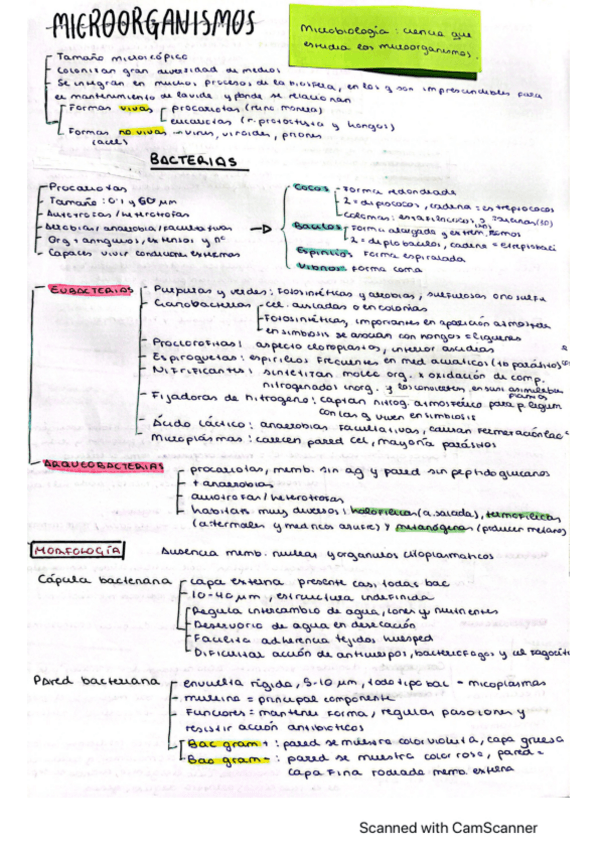 MICROORGANISMOS
Microbiología: ciencia que
estudia los microorganismos.
Tamaño microscópico
Colonizan gran diversidad de medios
Se integran en muchos procesos de la biosfera, en los q son imprescindibles para
el mantenimiento de la vida y donde se relacionan
Formas vivas procariotas (reino monera)
eucariotas (r. protoctista y hongos)
Formas no vivas virus, viroides, priones
(acel)
BACTERIAS
Procariotas
Tamaño: 0'1 y 60 µm
Autótrofas / heterótrofas
Aerobias / anaerobia / facultativas
Org + antiguos, extensos y nº
Capaces vivir condiciones extremas
Cocos - Forma redondeada
2 = diplococos, cadena = estreptococos
Colonias: estafilococos y sarcinas (3D)
Bacilos Forma alargada y extrem. romos
2 = diplobacilos, cadena = estreptobacil
Espirilos Forma espiralada
Vibrios forma coma
EUBACTERIAS
Púrpuras y verdes: fotosintéticas y aerobias, sulfurosas o no sulfu
Cianobacterias cel. aisladas o en colonias
Fotosintéticas, importantes en aparición atmosfera
en simbiosis se asocian con hongos → líquenes
Proclorofitas: aspecto cloroplastos, interior ascidias
Espiroquetas: espirilos frecuentes en med acuáticos (+ parásitos)
Nitrificantes: sintetizan molec org. x oxidación de comp.
nitrogenados inorg. y los convierten en sust. asimilables
Fijadoras de nitrógeno: captan nitróg. atmosférico para p. legum
con las q viven en simbiosis
Ácido láctico: anaerobias facultativas, causan fermentación lac
Micoplasmas: carecen pared cel, mayoría parásitos
ARQUEOBACTERIAS
procariotas, memb. sin ag y pared sin peptidoglucanos
+ anaerobias
autótrofas / heterótrofas
habitan muy diversos: halofílicas (a. salada), termofílicas
(a. termales y medios azufre) y metanógenas (producen metano)
MORFOLOGÍA Ausencia memb. nuclear y orgánulos citoplasmáticos
Cápsula bacteriana capa externa presente casi todas bac
10-40 µm, estructura indefinida
Regula intercambio de agua, iones y nutrientes
Reservorio de agua en desecación
Facilita adherencia tejidos huésped
Dificultar acción de anticuerpos, bacteriófagos y cel fagocit
Pared bacteriana envuelta rígida, 5-10 µm, todo tipo bac - micoplasmas
mureína = principal componente
Funciones = mantener forma, regular paso iones y
resistir acción antibióticos
Bac gram + : pared se muestra color violeta, capa gruesa
Bac gram - : pared se muestra color rosa, pared =
capa fina rodeada memb. externa
Scanned with CamScanner